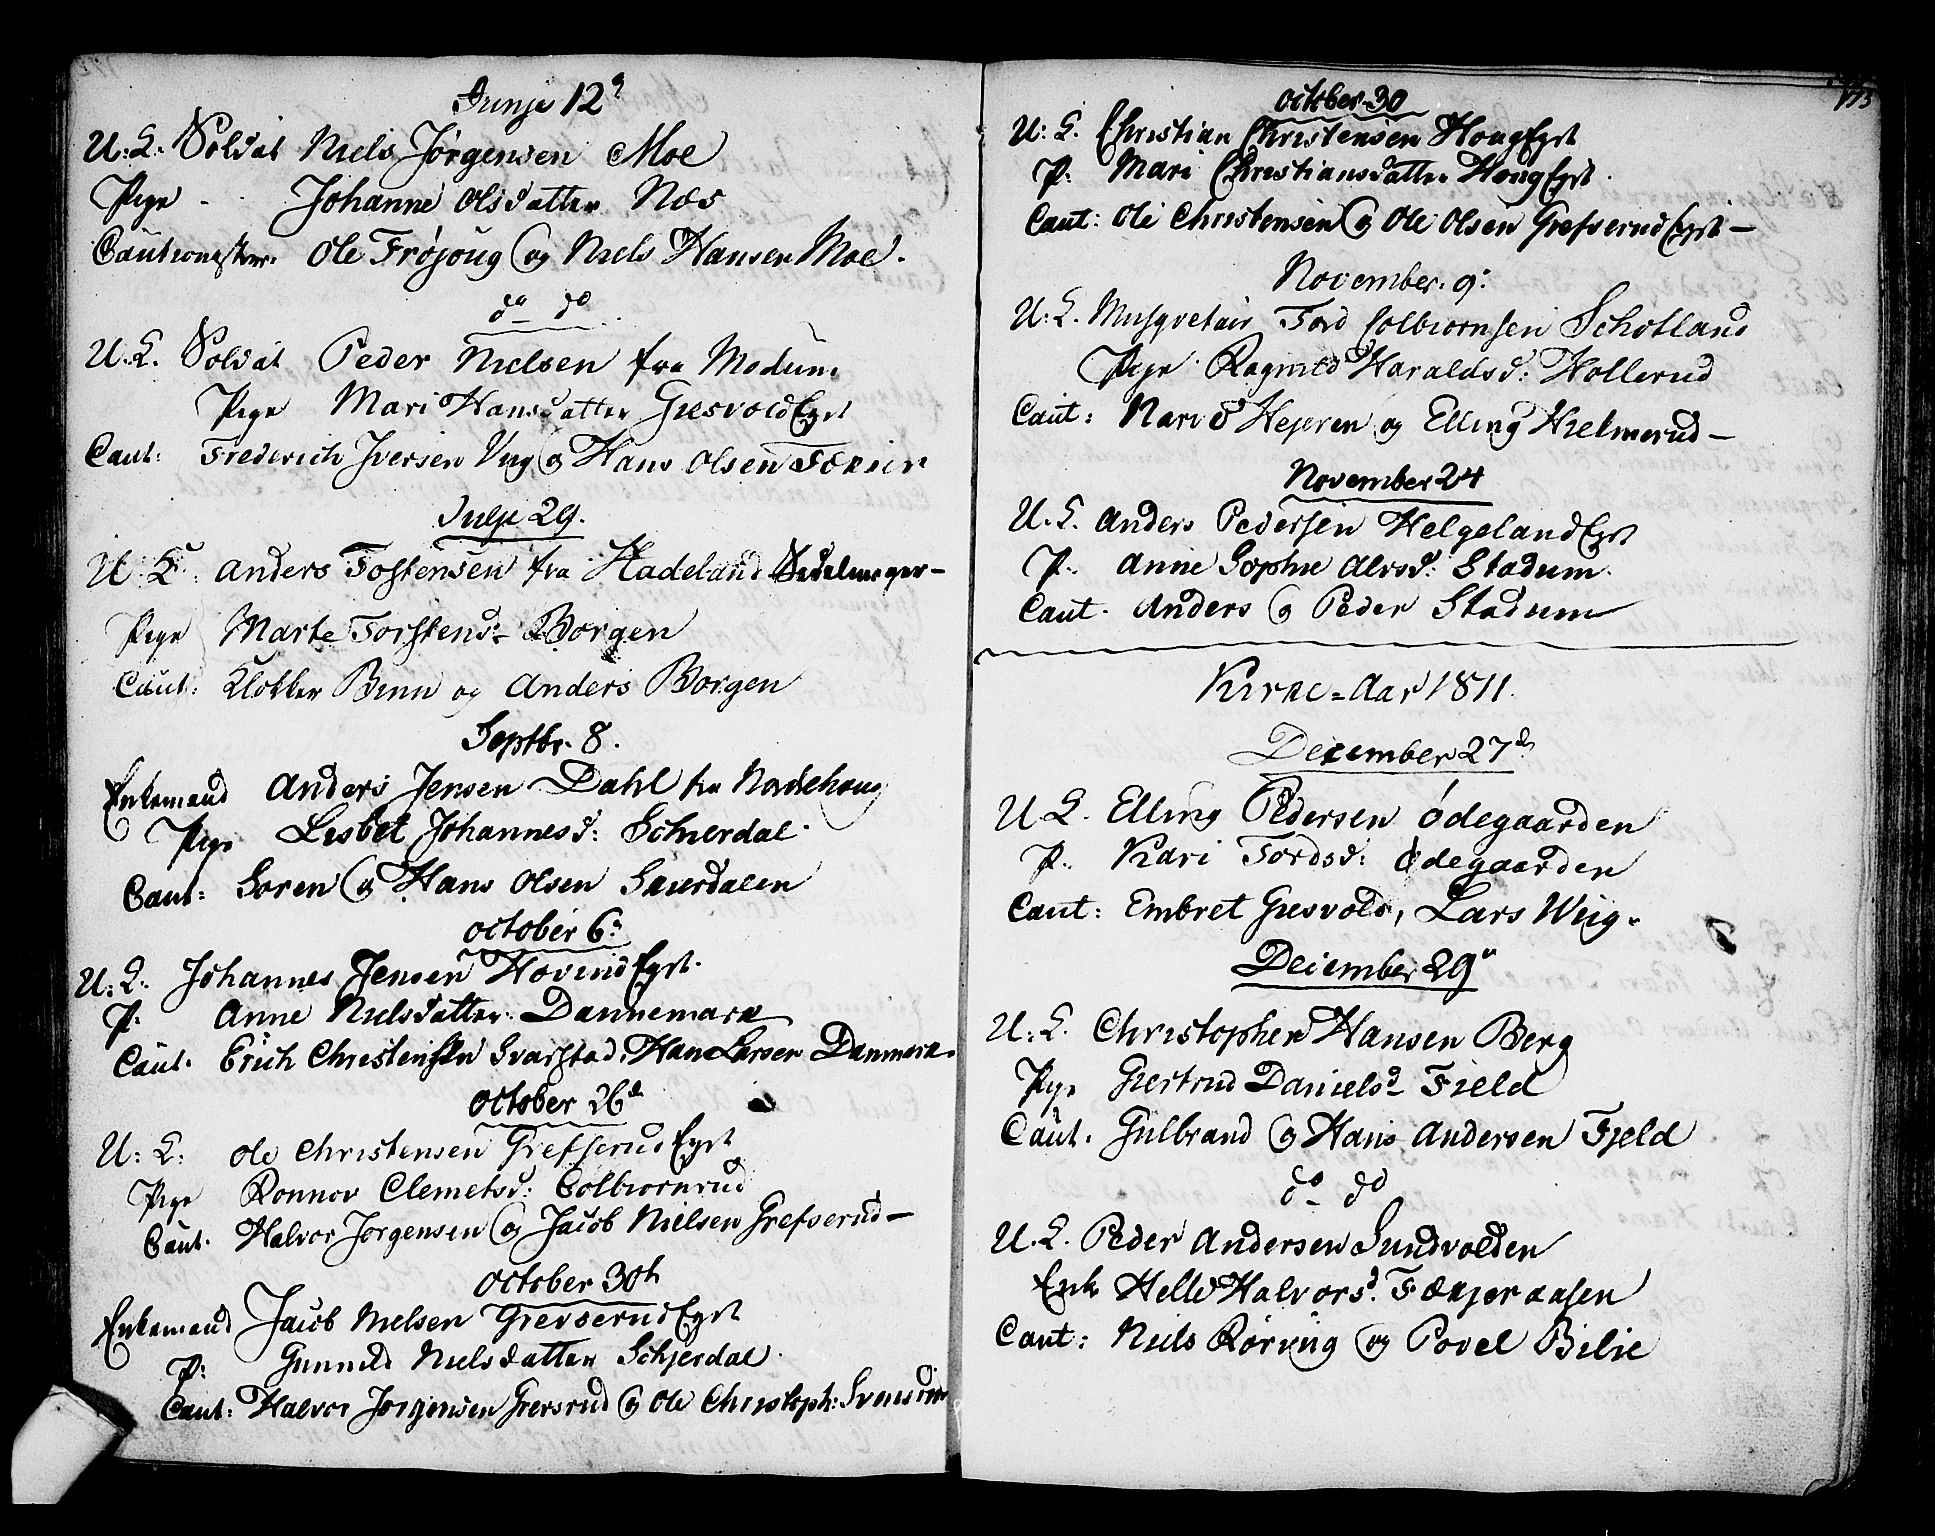 Junje 12
U: K: Soldat Niels Jørgensen Moe
Pige - Johanne Olsdatter Næs
Cautionister Ole Frøjoug og Niels Hansen Moe.
do do
U: K. Soldat Peder Nielsen fra Modum
Pige Mari Hansdatter Giesvold Eyet
Caut: Frederich Iversen Vüg og Hans Olsen
Julji 29.
U: K. Anders Tostensen fra Hadeland
Pige Marte Torstensd. Borgen
Caut: Klokker Binn og Anders Borgen
Septbr. 8.
Enkemand Anders Jensen Dahl fra Nordrehoug
Pige Lisbet Johannesd: Schierdal
Caut: Soren og Hans Olsen Skierdalen
October 6
U: K. Johannes Jensen Hovind Eyet.
P: Anne Nielsdatter Dannemark
Caut. Erich Christensen Svarstad, Hans Larsen Danmark.
October 26d
U: K: Ole Christensen Grefserud Eyet
Pige Ronnov Clemetsd: Colbiornrud
Caut. Halvor Jorgensen og Jacob Nielsen Grefserud -
October 30t
Enkemand Jacob Nielsen Grevserud Eyet
P: Gunnild Nielsdatter Schjerdal.
Caut: Halvor Jorgensen Grevsrud og Ole Christoph:
175
October 30
U: K. Christian Christensen Houg Eyet
P. Mari Christiansdatter Houg Eyet.
Caut: Ole Christensen og Ole Olsen Grefserud Eyet -
November. 9:
U: K. Musqvetair Tord Colbiornsen Schotland
Pige Ragnild Haraldsd: Hollerud
Caut: Narvd Hejeren og Elling Hielmerud -
November 24
U. K. Anders Pedersen Helgeland Eyet
P. Anne Sophie Alvsd: Stadum.
Caut. Anders og Peder Stadum
Kirke-Aar 1811.
December 27d
U K. Elling Pedersen Ødegaarden
P. Kari Tordsd: Ødegaarden
Caut: Embret Giesvold, Lars Wüg.
December 29
U: K. Christopher Hansen Berg
Pige Giertrud Danielsd. Field
Caut. Gulbrand og Hans Andersen Fjeld
do do
U. K. Peder Andersen Sundvolden
Enk Helle Halvorsd. Fækjeraasen
Caut: Niels Rørvig og Povel Bilie